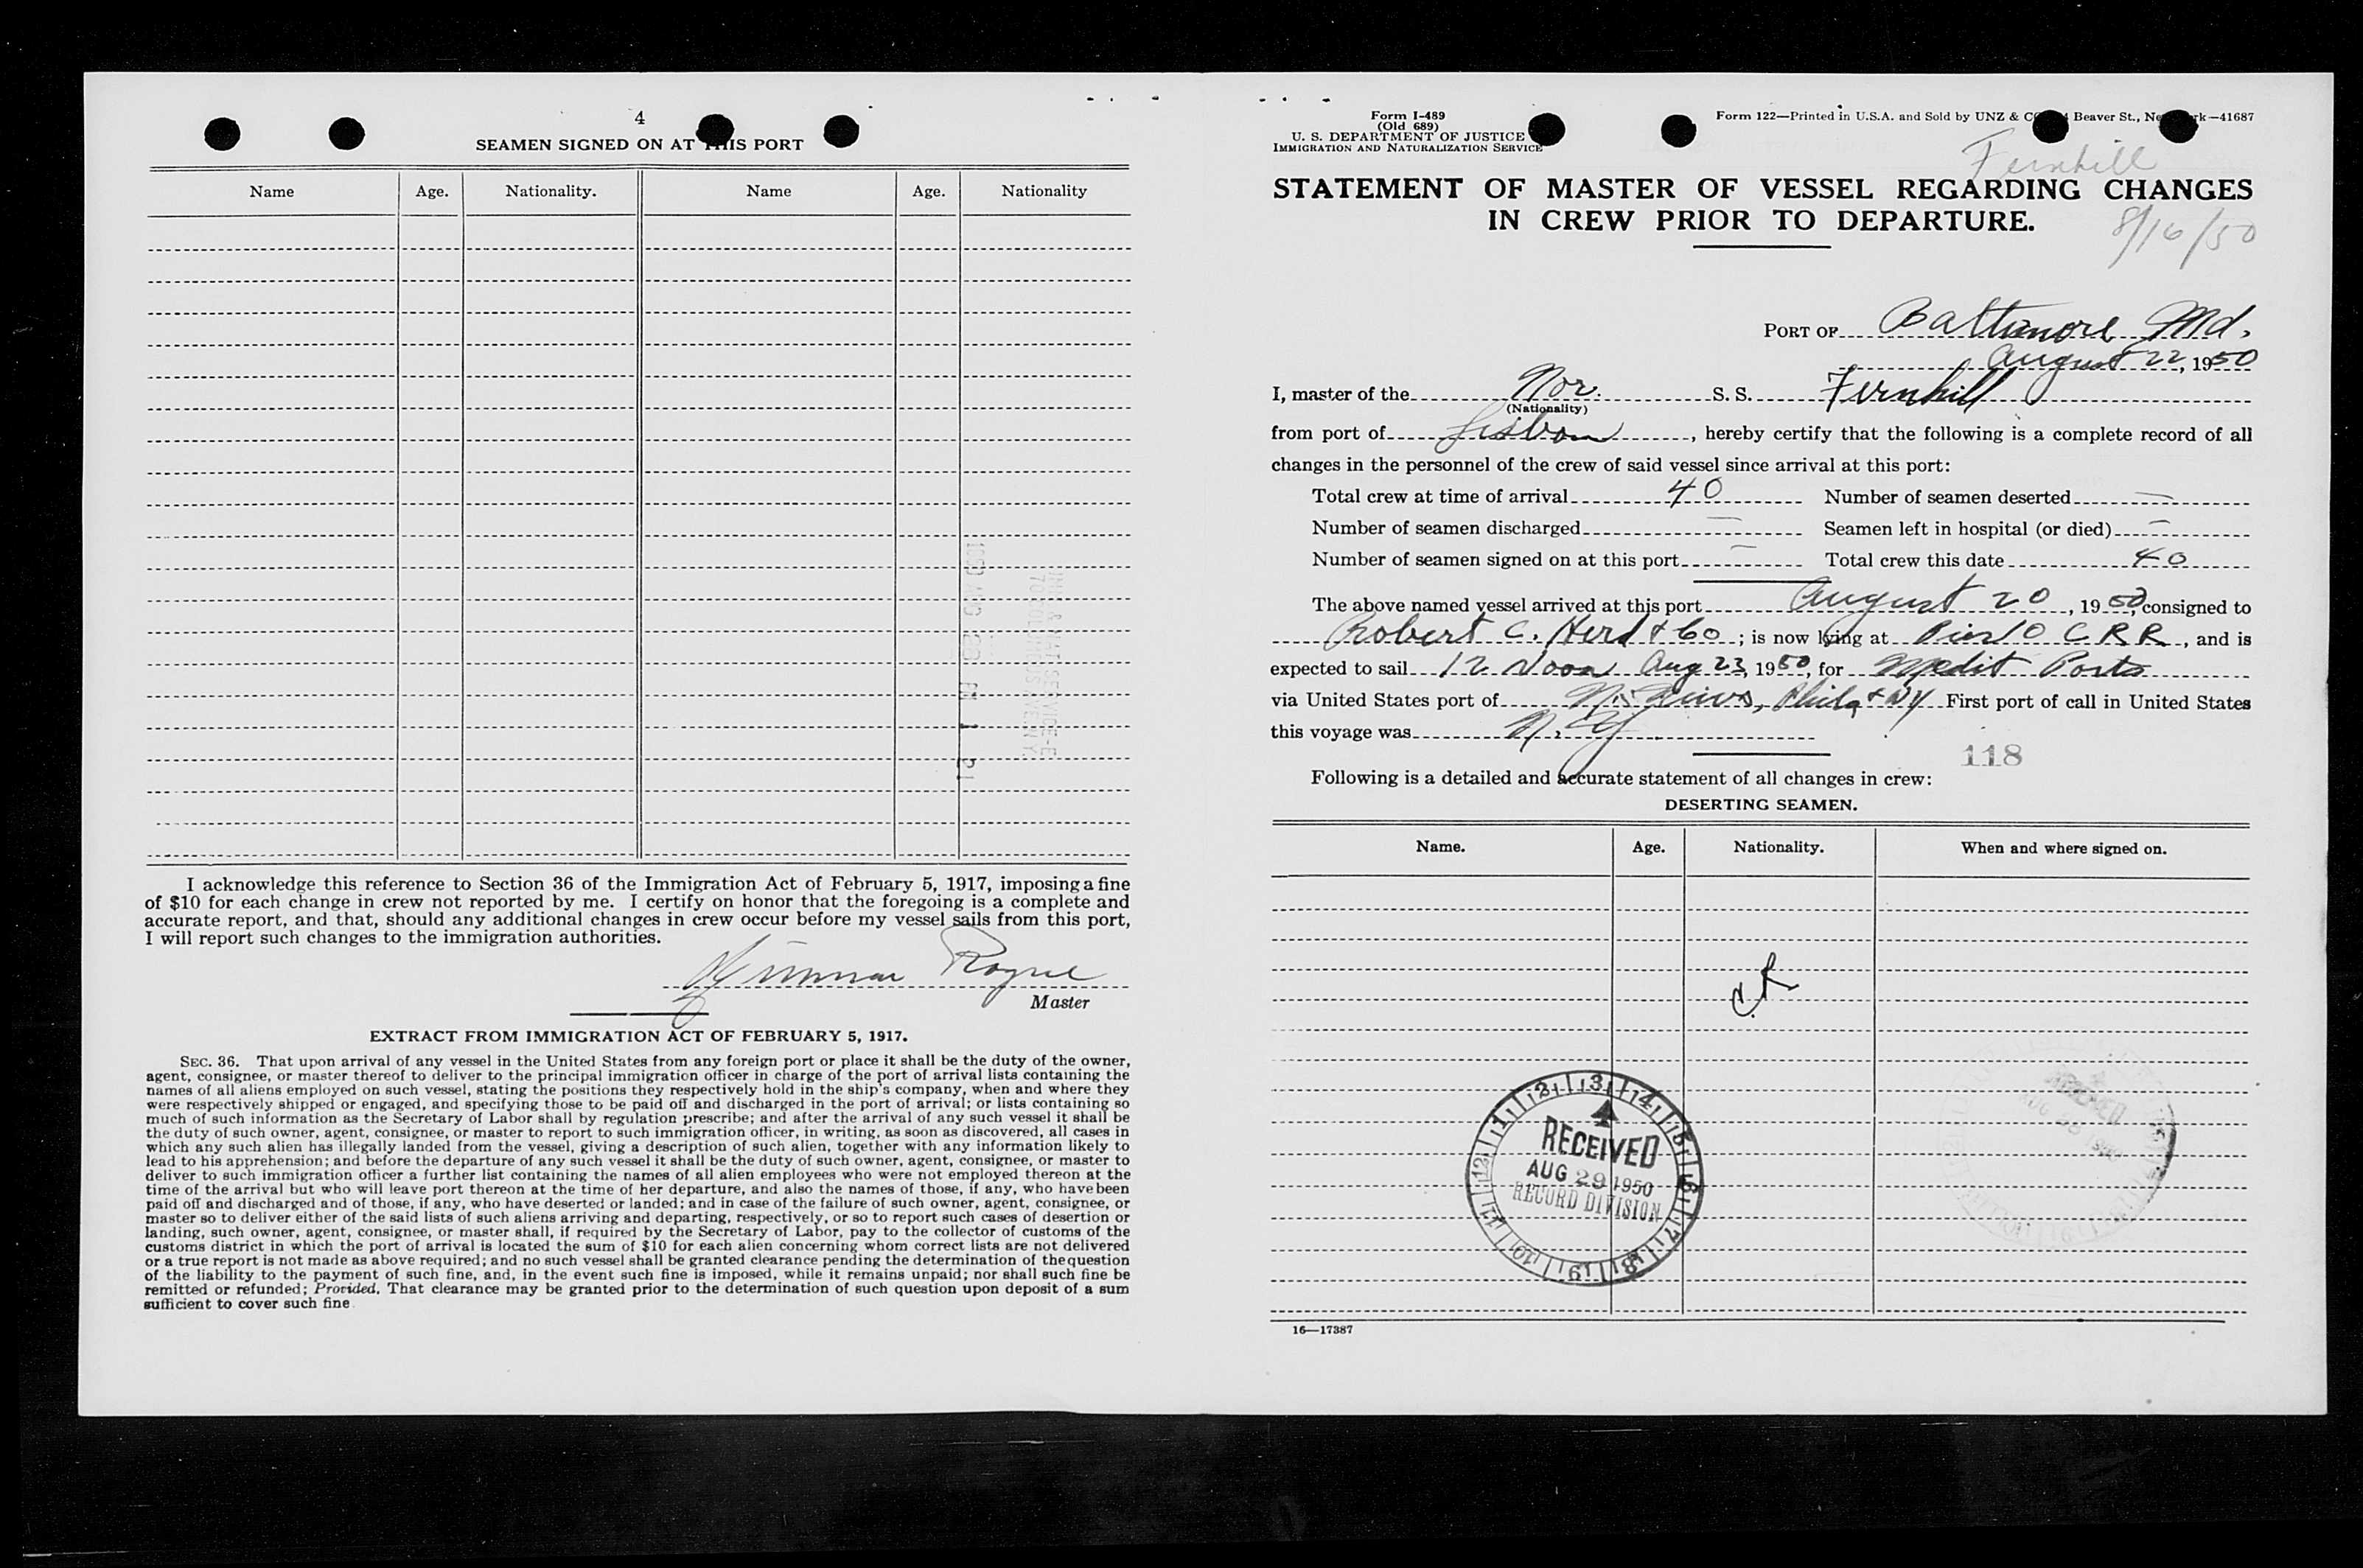 4
SEAMEN SIGNED ON AT THIS PORT
Name Age. Nationality. Name Age. Nationality
I acknowledge this reference to Section 36 of the Immigration Act of February 5, 1917, imposing a fine
of $10 for each change in crew not reported by me. I certify on honor that the foregoing is a complete and
accurate report, and that, should any additional changes in crew occur before my vessel sails from this port,
I will report such changes to the immigration authorities.
Master
EXTRACT FROM IMMIGRATION ACT OF FEBRUARY 5, 1917.
SEC. 36. That upon arrival of any vessel in the United States from any foreign port or place it shall be the duty of the owner,
agent, consignee, or master thereof to deliver to the principal immigration officer in charge of the port of arrival lists containing the
names of all aliens employed on such vessel, stating the positions they respectively hold in the ship's company, when and where they
were respectively shipped or engaged, and specifying those to be paid off and discharged in the port of arrival; or lists containing so
much of such information as the Secretary of Labor shall by regulation prescribe; and after the arrival of any such vessel it shall be
the duty of such owner, agent, consignee, or master to report to such immigration officer, in writing, as soon as discovered, all cases in
which any such alien has illegally landed from the vessel, giving a description of such alien, together with any information likely to
lead to his apprehension; and before the departure of any such vessel it shall be the duty of such owner, agent, consignee, or master to
deliver to such immigration officer a further list containing the names of all alien employees who were not employed thereon at the
time of the arrival but who will leave port thereon at the time of her departure, and also the names of those, if any, who have been
paid off and discharged and of those, if any, who have deserted or landed; and in case of the failure of such owner, agent, consignee, or
master so to deliver either of the said lists of such aliens arriving and departing, respectively, or so to report such cases of desertion or
landing, such owner, agent, consignee, or master shall, if required by the Secretary of Labor, pay to the collector of customs of the
customs district in which the port of arrival is located the sum of $10 for each alien concerning whom correct lists are not delivered
or a true report is not made as above required; and no such vessel shall be granted clearance pending the determination of the question
of the liability to the payment of such fine, and, in the event such fine is imposed, while it remains unpaid; nor shall such fine be
remitted or refunded; Provided, That clearance may be granted prior to the determination of such question upon deposit of a sum
sufficient to cover such fine
Form I-489
(Old 689)
U. S. DEPARTMENT OF JUSTICE
IMMIGRATION AND NATURALIZATION SERVICE
Form 122—Printed in U.S.A. and Sold by UNZ & Beaver St., —41687
Fernhill
STATEMENT OF MASTER OF VESSEL REGARDING CHANGES
IN CREW PRIOR TO DEPARTURE.
8/16/50
PORT OF Baltimore Md.
August 22, 1950
I, master of the Nor. S. S. Fernhill
(Nationality)
from port of Lisbon, hereby certify that the following is a complete record of all
changes in the personnel of the crew of said vessel since arrival at this port:
Total crew at time of arrival 40 Number of seamen deserted —
Number of seamen discharged — Seamen left in hospital (or died) —
Number of seamen signed on at this port — Total crew this date 40
The above named vessel arrived at this port August 20, 1950, consigned to
Robert C. Herd & Co; is now lying at Pier 10 C R R, and is
expected to sail 12 Noon Aug 23, 1950, for Medit Ports
via United States port of N. News, Phila & NY First port of call in United States
this voyage was N. Y.
118
Following is a detailed and accurate statement of all changes in crew:
DESERTING SEAMEN.
Name. Age. Nationality. When and where signed on.
RECEIVED
AUG 29 1950
RECORD DIVISION
1 2 3 4 5 6 7 8 9 10 11 12
16—17387